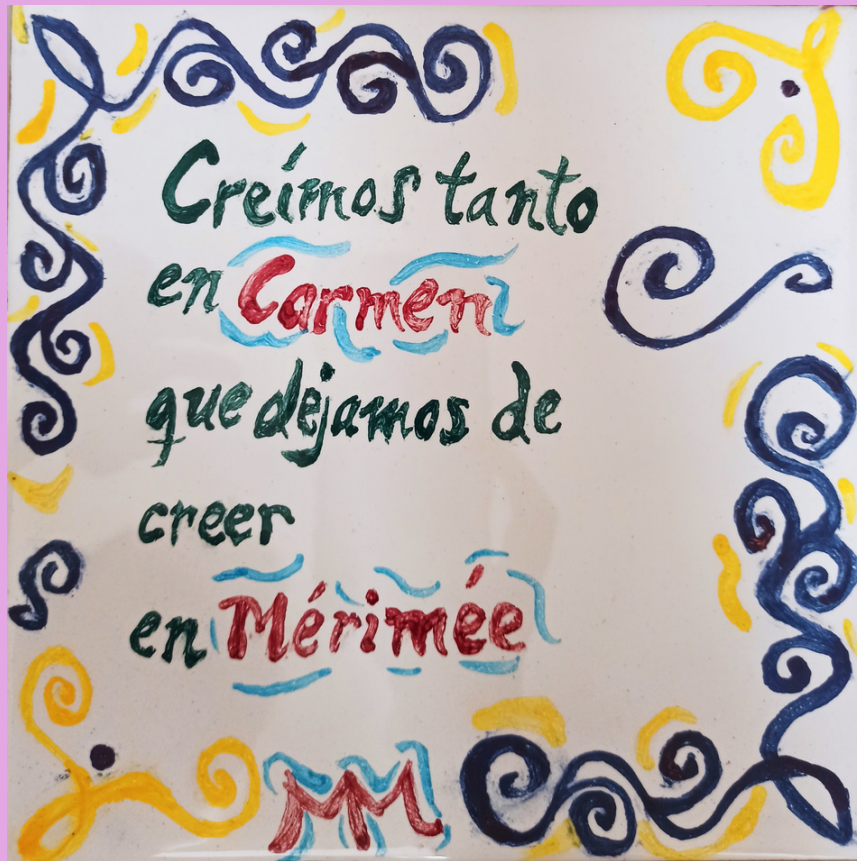 Creímos tanto
en Carmen
que dejamos de
creer
en Mérimée
MM